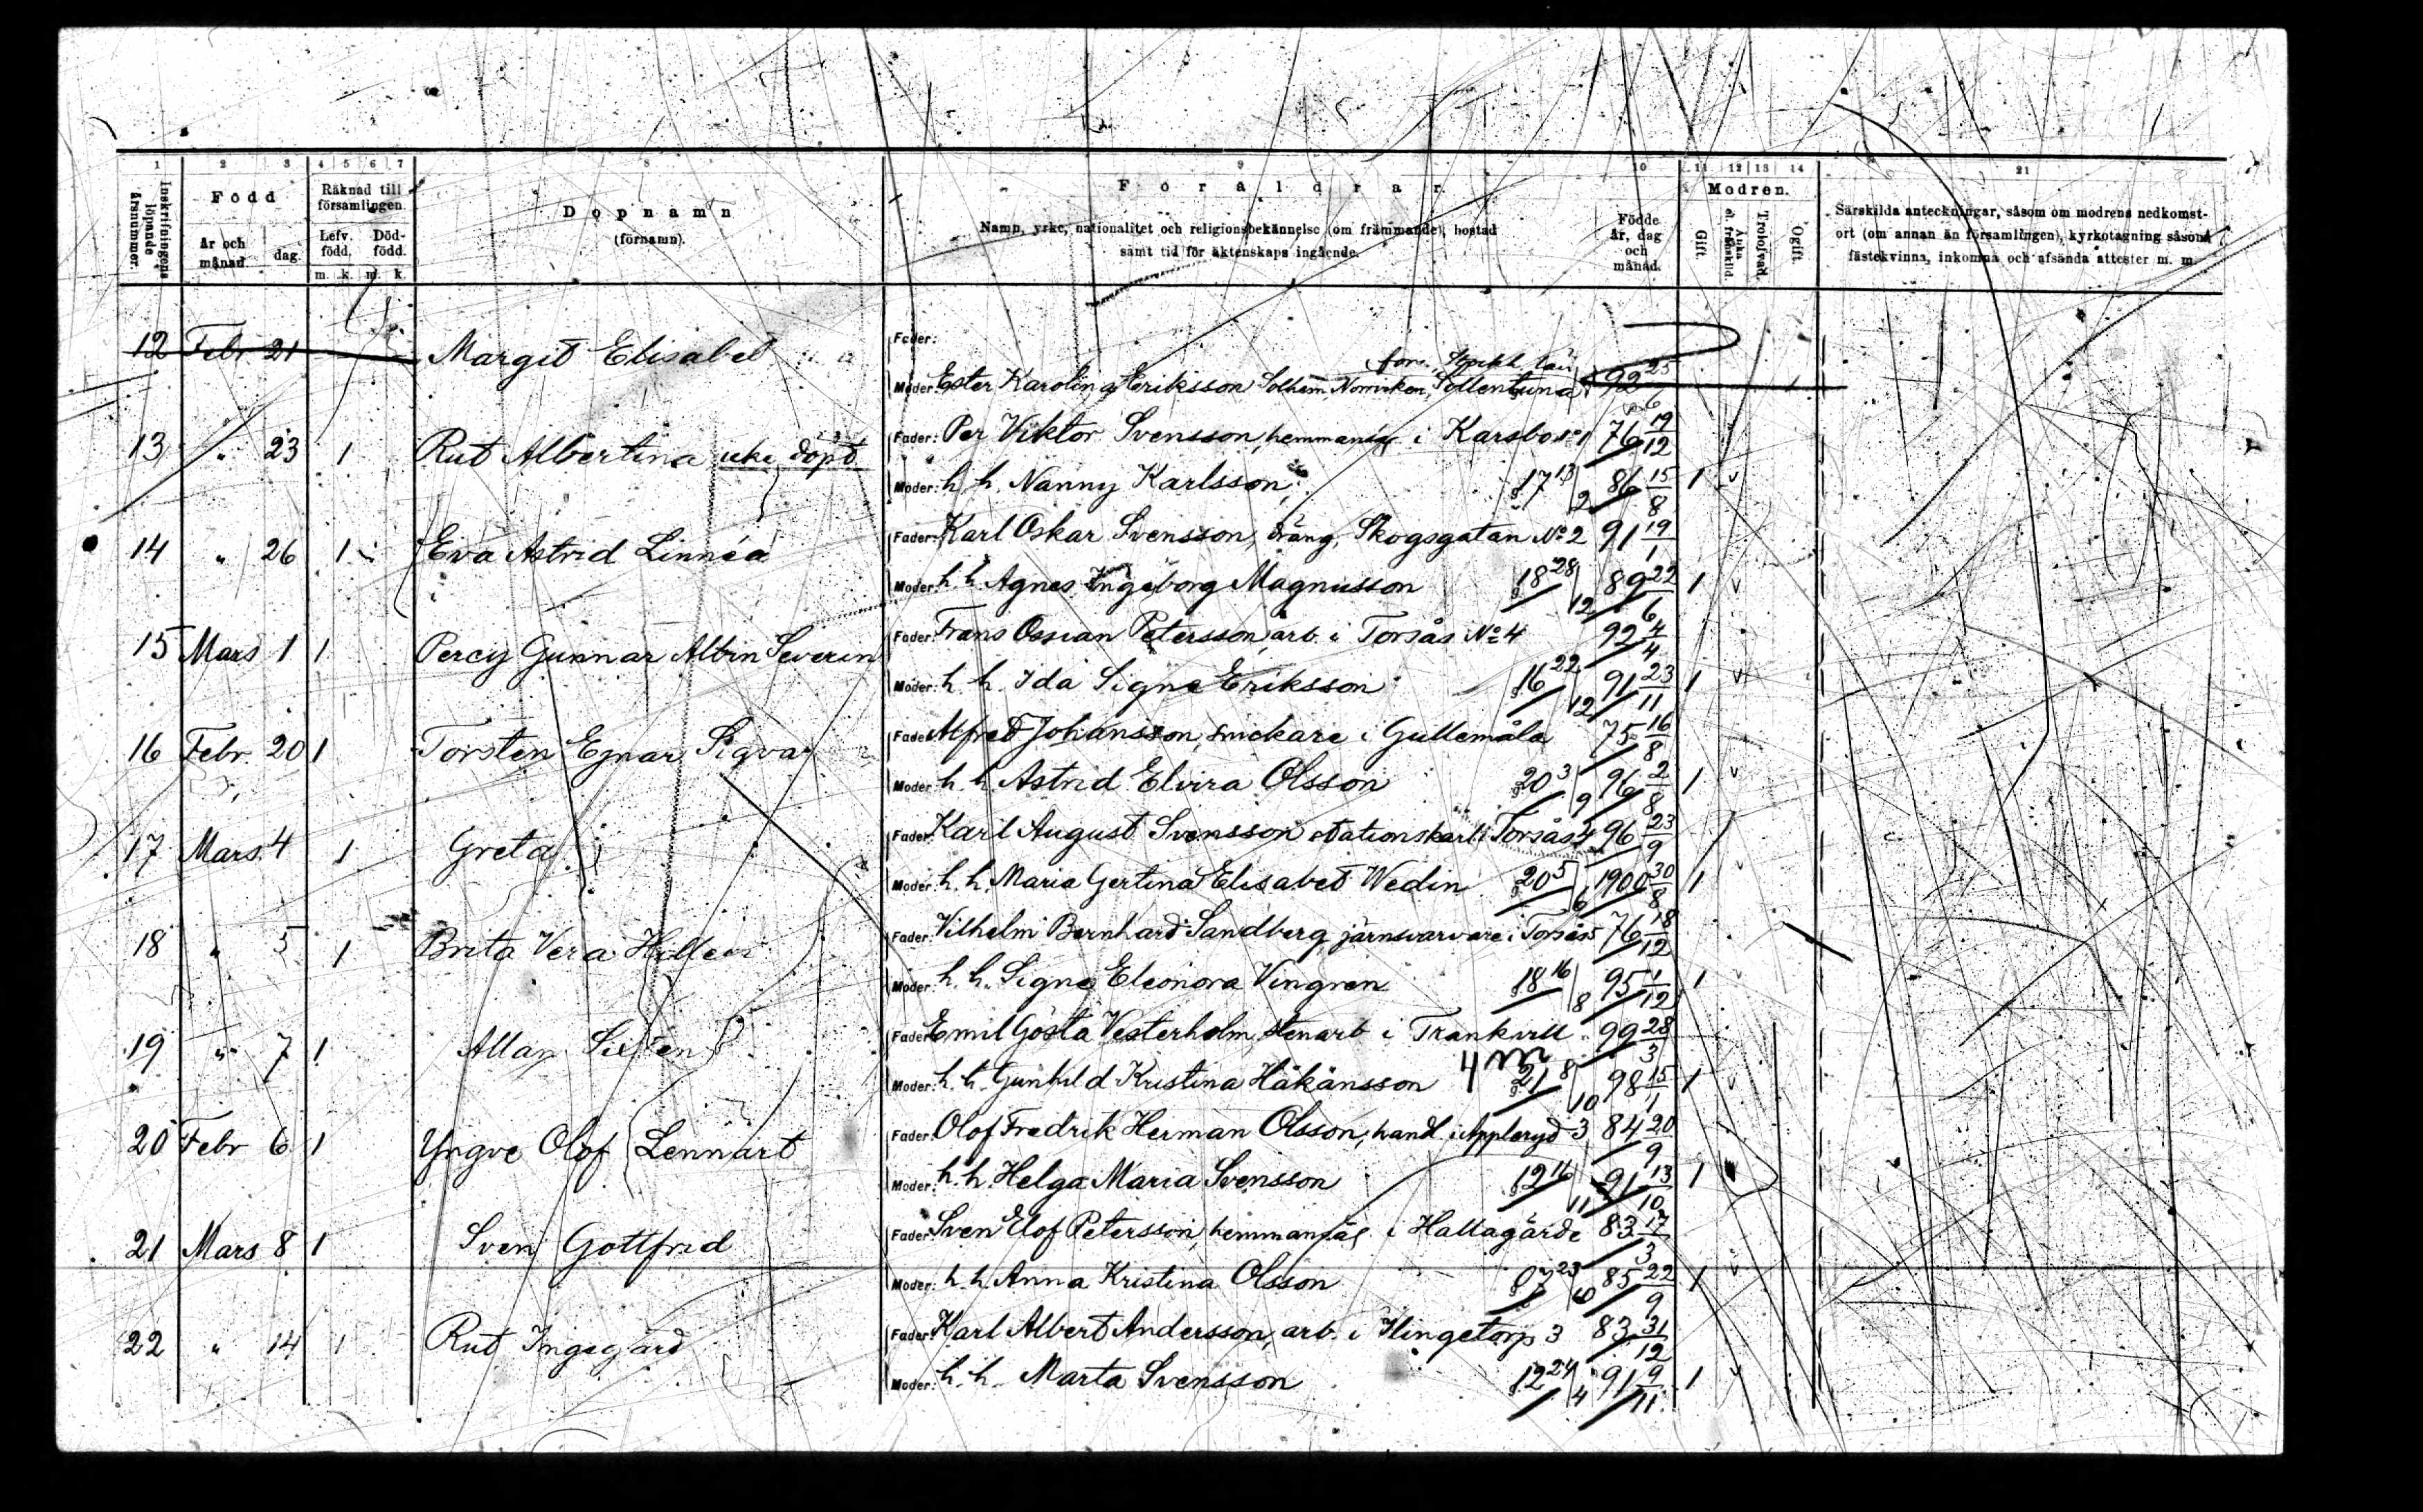 1 2 3 4 5 6 7 8 9 10 11 12 13 14 21
Inskrifningens löpande årsnummer.
Född
år och månad dag
Räknad till församlingen.
Lefv. född. Död-född.
m. k. m. k.
Dopnamn
(förnamn).
Föräldrar.
Namn, yrke, nationalitet och religionsbekännelse (om främmande), bostad
samt tid för äktenskaps ingående.
Födde år, dag och månad.
Modren.
Gift. Änka el. frånskild. Trolofvad. Ogift.
Särskilda anteckningar, såsom om modrens nedkomst-
ort (om annan än församlingen), kyrkotagning såsom
fästekvinna, inkomna och afsända attester m. m.
Fader:
12 Febr 21 Margit Elisabet
förs., Stockh. län
Moder: Ester Karolina Eriksson Solhem, Norrviken, Sollentuna 92 25/6
Fader: Per Viktor Svensson, hemmansäg. i Karsbo No 1 76 19/12
13 " 23 1 Rut Albertina icke döpt
Moder: h. h. Nanny Karlsson, g. 17 13/2 86 15/8 1 v
Fader: Karl Oskar Svensson, dräng, Skogsgatan No 2 91 19/1
14 " 26 1 Eva Astrid Linnéa
Moder: h. h. Agnes Ingeborg Magnusson g. 18 28/12 89 22/6 1 v
Fader: Frans Ossian Petersson, arb. i Torsås No 4 92 4/4
15 Mars 1 1 Percy Gunnar Albin Severin
Moder: h. h. Ida Signe Eriksson g. 16 22/12 91 23/11 1 v
Fader: Alfred Johansson, snickare i Gullemåla 75 16/8
16 Febr. 20 1 Torsten Egnar Sigvar
Moder: h. h. Astrid Elvira Olsson g. 20 3/9 96 2/8 1 v
Fader: Karl August Svensson stationskarl i Torsås 4 96 23/9
17 Mars 4 1 Greta
Moder: h. h. Maria Gertina Elisabet Wedin g. 20 5/6 1900 30/8 1 v
Fader: Vilhelm Bernhard Sandberg, järnsvarvare i Torsås 5 76 18/12
18 " 5 1 Brita Vera Hillevi
Moder: h. h. Signe Eleonora Vingren g. 18 16/8 95 1/12 1 v
Fader: Emil Gösta Vesterholm, stenarb i Trankvill 99 28/3
19 " 7 1 Allan Sixten
Moder: h. h. Gunhild Kristina Håkansson g. 21 8/10 98 15/1 1 v
Fader: Olof Fredrik Herman Olsson, handl. i Appleryd 3 84 20/9
20 Febr 6 1 Yngve Olof Lennart
Moder: h. h. Helga Maria Svensson g. 12 16/11 91 13/10 1
Fader: Sven Elof Petersson, hemmansäg i Hallagärde 83 17/3
21 Mars 8 1 Sven Gottfrid
Moder: h. h. Anna Kristina Olsson g. 07 23/10 85 22/9 1 v
Fader: Karl Albert Andersson, arb. i Ilingetorp 3 83 31/12
22 " 14 1 Rut Ingegärd
Moder: h. h. Marta Svensson g. 12 24/4 91 9/11 1 v